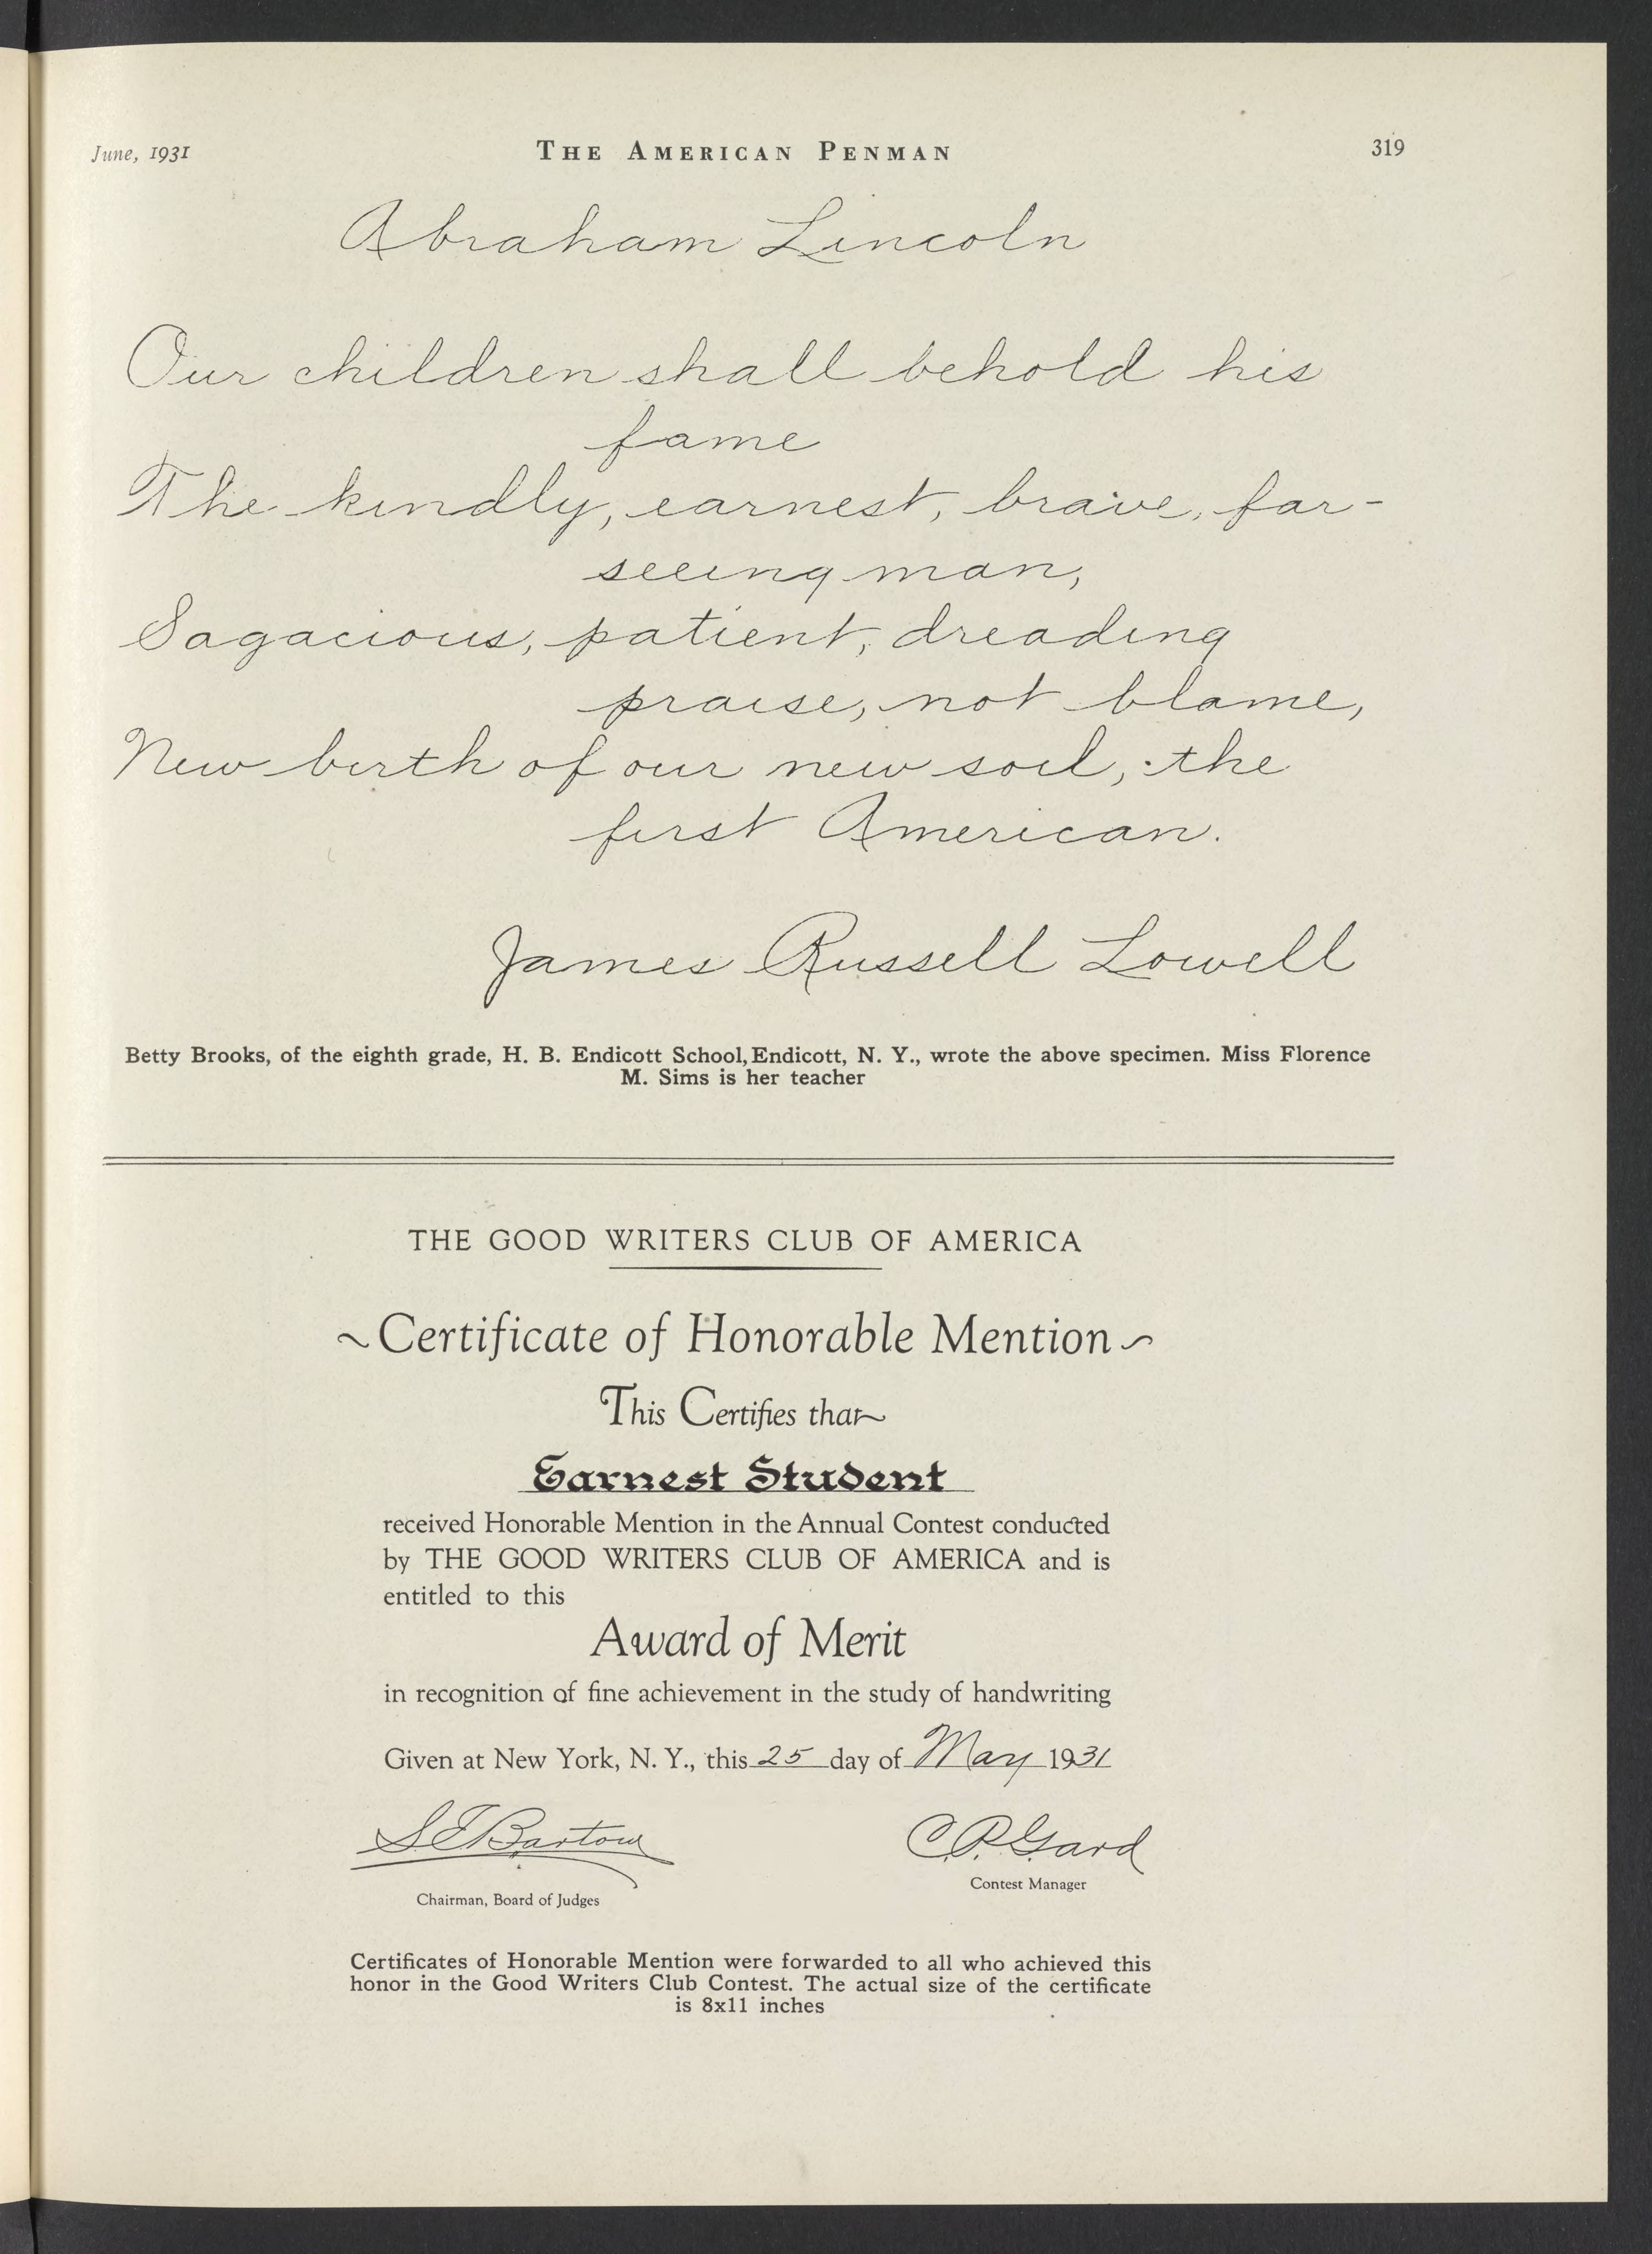 June, 1931 THE AMERICAN PENMAN 319
Abraham Lincoln
Our children shall behold his
fame
The kindly, earnest, brave, far-
seeing man,
Sagacious, patient, dreading
praise, not blame,
New birth of our new soil, the
first American.
James Russell Lowell
Betty Brooks, of the eighth grade, H. B. Endicott School, Endicott, N. Y., wrote the above specimen. Miss Florence
M. Sims is her teacher
THE GOOD WRITERS CLUB OF AMERICA
~Certificate of Honorable Mention~
This Certifies that~
Earnest Student
received Honorable Mention in the Annual Contest conducted
by THE GOOD WRITERS CLUB OF AMERICA and is
entitled to this
Award of Merit
in recognition of fine achievement in the study of handwriting
Given at New York, N. Y., this 25 day of May 1931
S E Bartow C. P. Gard
Contest Manager
Chairman, Board of Judges
Certificates of Honorable Mention were forwarded to all who achieved this
honor in the Good Writers Club Contest. The actual size of the certificate
is 8x11 inches